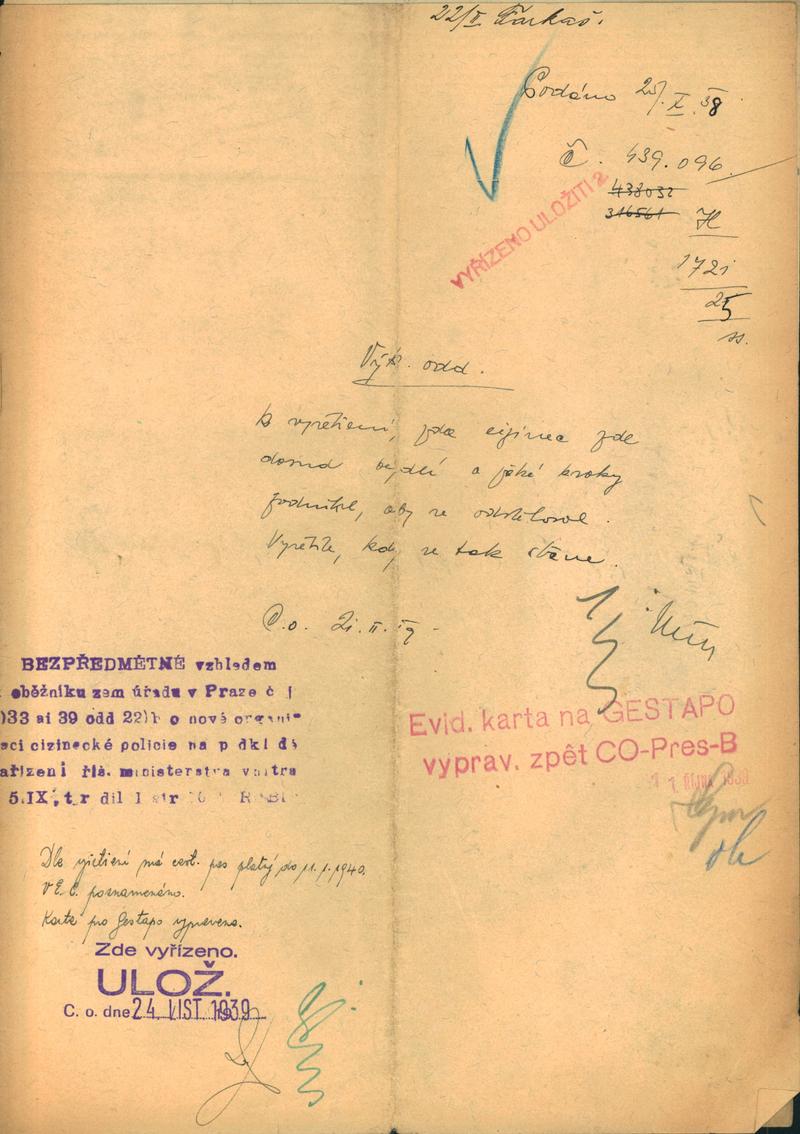 22/II Farkaš.
Podáno 25/X 38
Č. 439.096
438032
316561
H
172i
25
ss.
VYŘÍZENO ULOŽITI 2
Výk. odd.
K vyšetření, zda cizinec zde
dosud bydlí a jaké kroky
podnikl, aby se odstěhoval.
Vyšetřte, kdy se tak stane.
C.o. 21.II.
BEZPŘEDMĚTNÉ vzhledem
oběžníku zem úřadu v Praze č
033 ai 39 odd 22 o nové organi
aci cizinecké policie na p dkl dě
ařízení říš. ministerstva vnitra
5.IX, t.r díl I str
Evid. karta na GESTAPO
vyprav. zpět CO-Pres-B
11 října 1939
ok
Dle zjištění má cest. pas platný do 11.1.1940.
V E.C. poznamenáno.
Karta pro Gestapo vypravena.
Zde vyřízeno.
ULOŽ.
C. o. dne 24. LIST. 1939